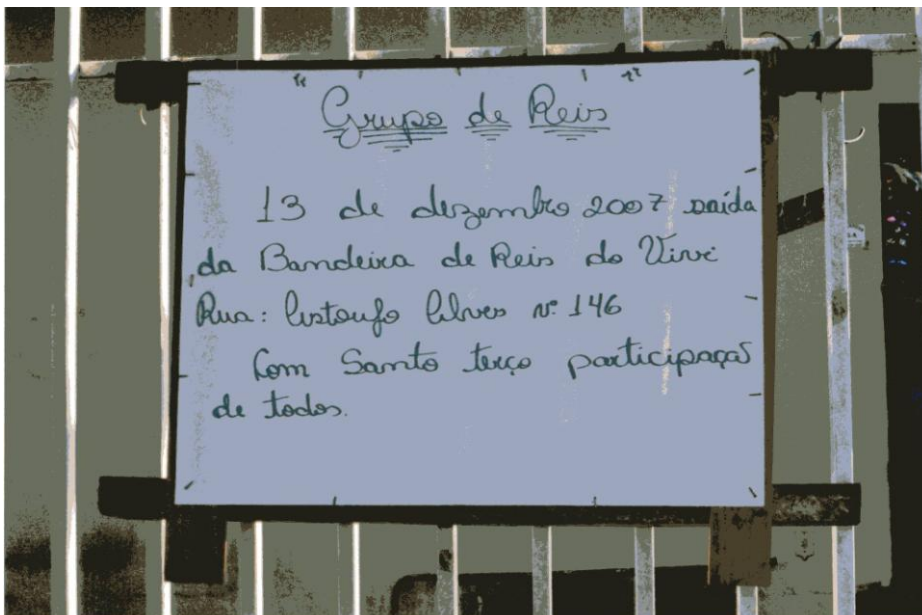 " Grupo de Reis "
13 de dezembro 2007 saída
da Bandeira de Reis do Vivi
Rua: Astoufo Alves nº 146
Com Santo terço participaças
de todos.